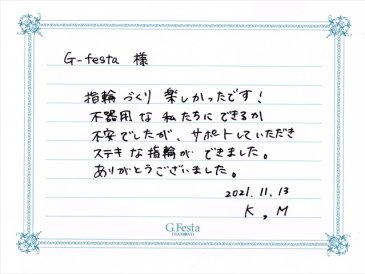 G-festa 様
指輪づくり 楽しかったです!
不器用な私たちにできるか
不安でしたが、サポートしていただき
ステキな指輪ができました。
ありがとうございました。
2021.11.13
K,M
G.Festa